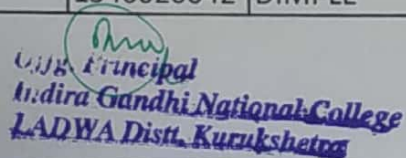 DIMPLE
Offg. Principal
Indira Gandhi National College
LADWA Distt. Kurukshetra